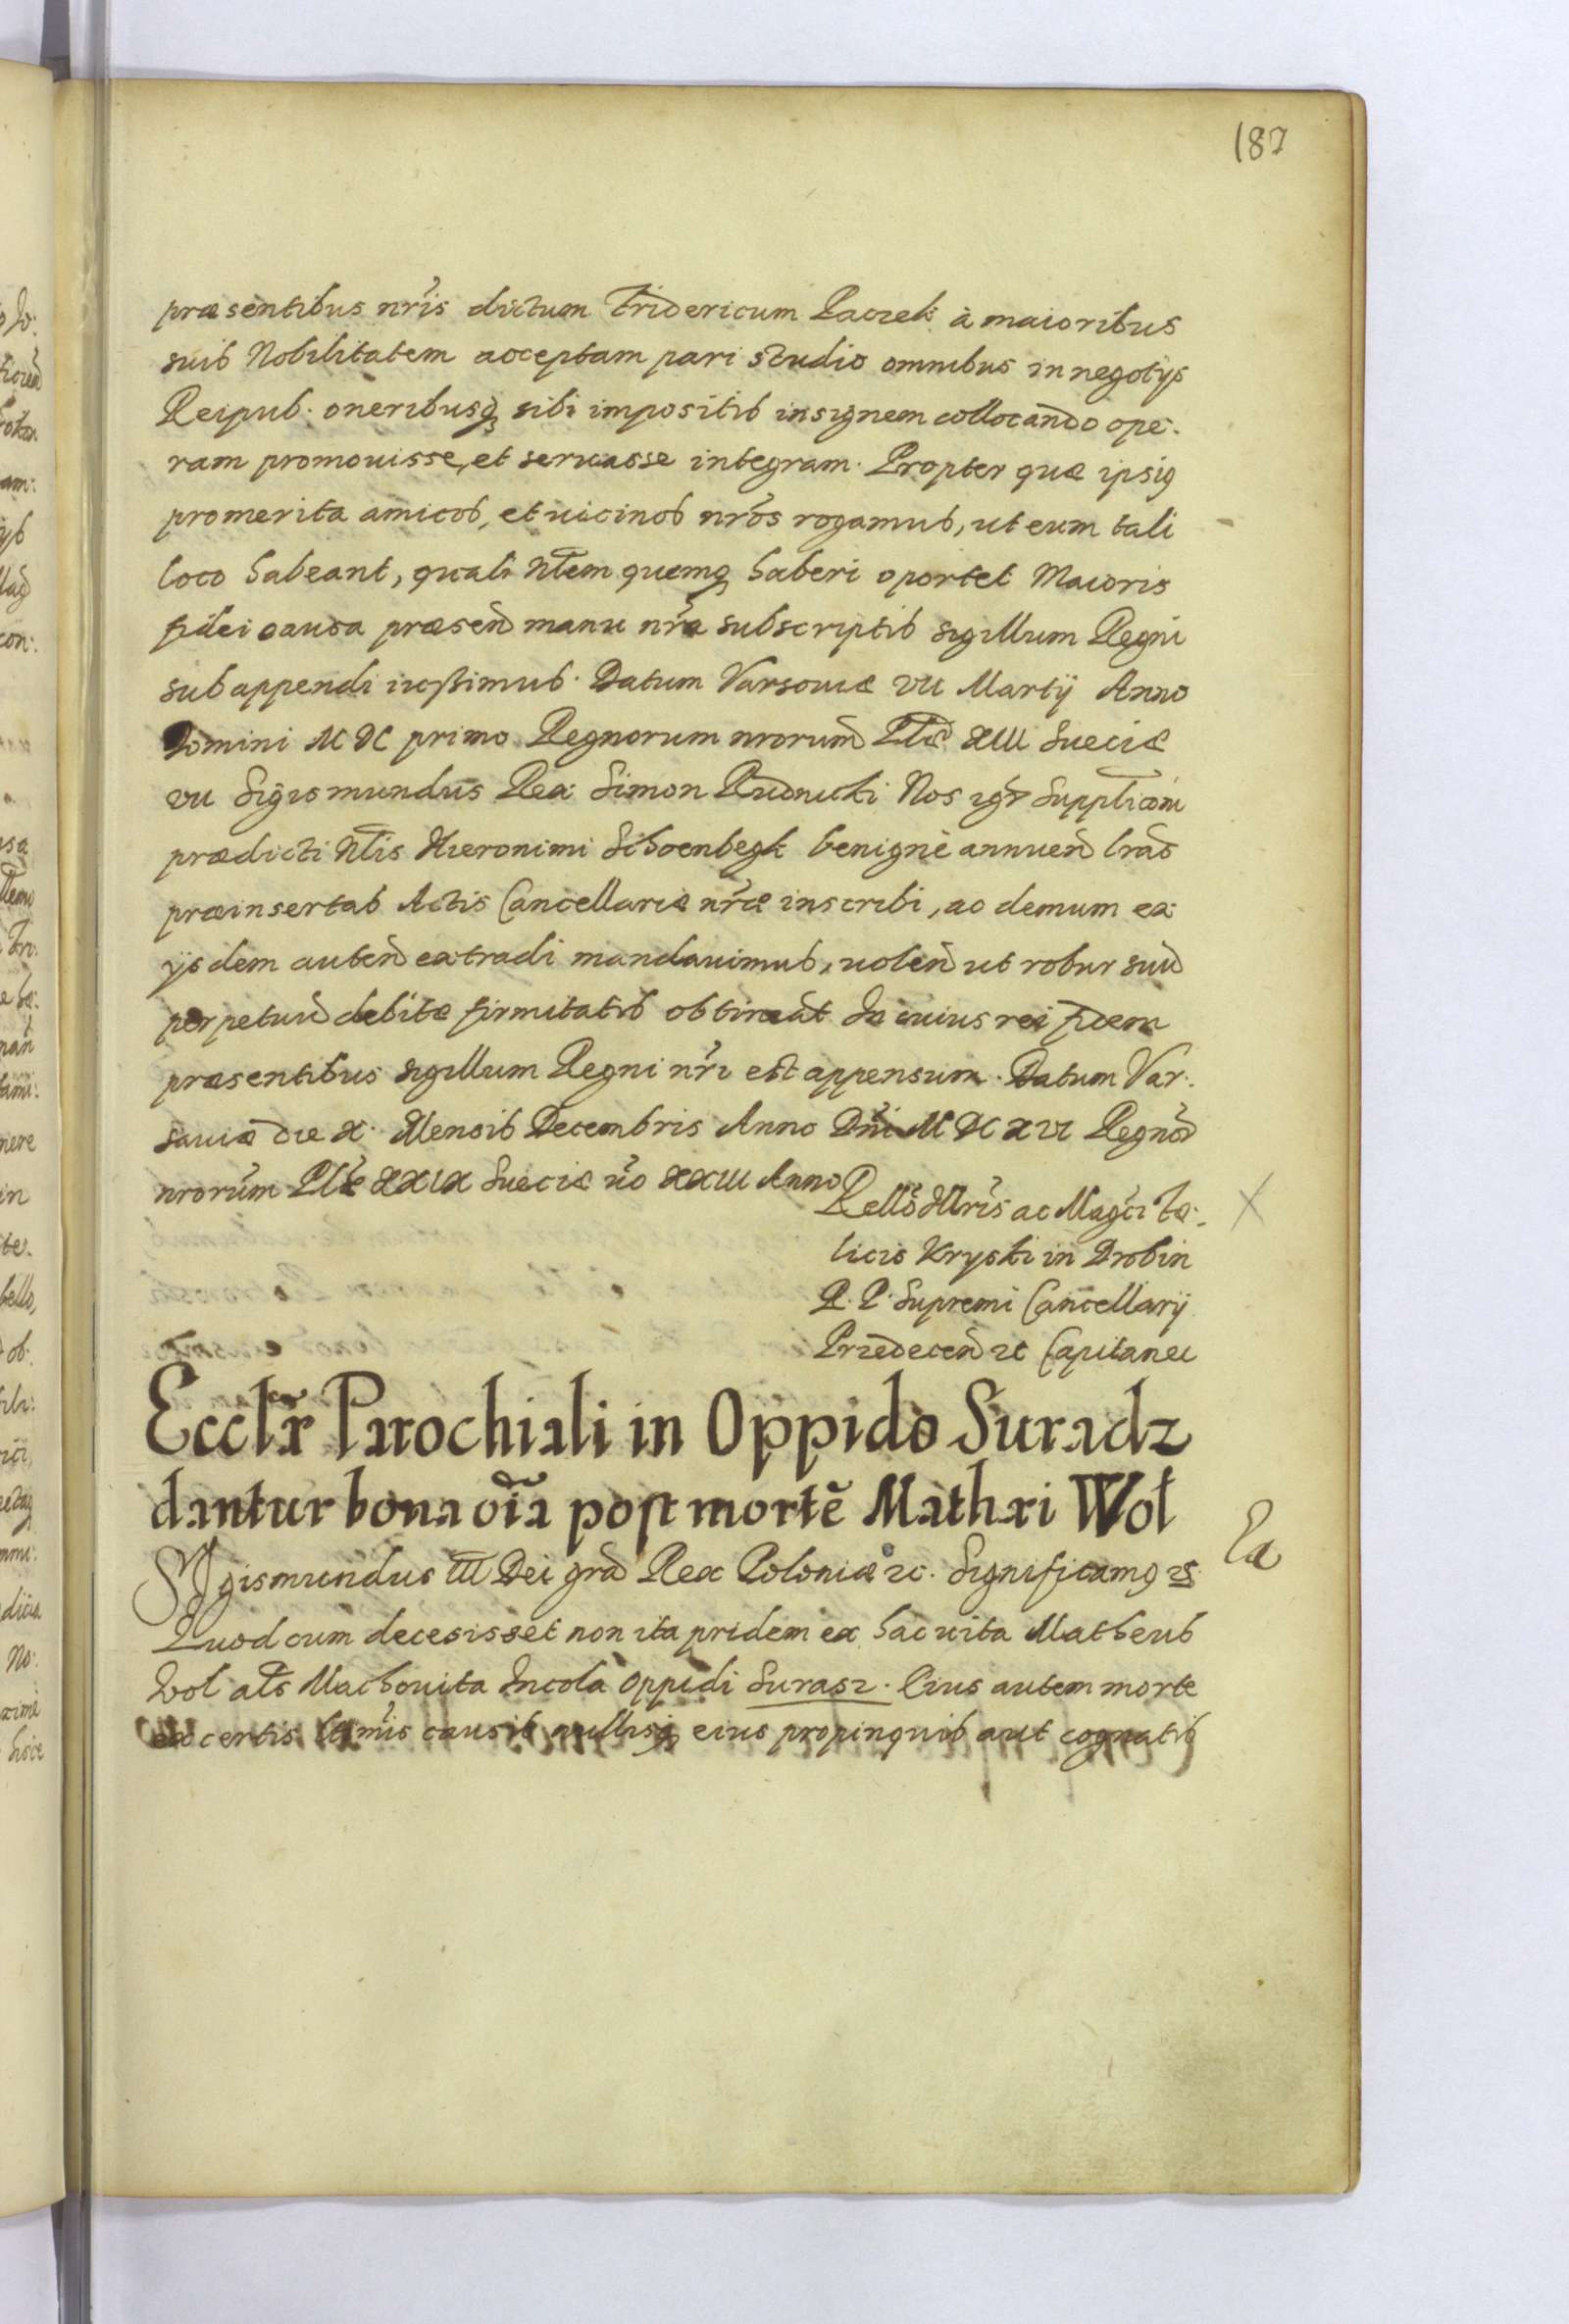 187
præsentibus nr̃is dictum Fridericum Paczek à maioribus
suis Nobilitatem acceptam pari studio omnibus in negotijs
Reipub: oneribusq̃ sibi impositis insignem collocando ope-
ram promouisse, et seruasse integram. Propter quæ ipsiꝰ
promerita amicos, et uicinos nr̃os rogamus, ut eum tali
loco habeant, quali Nl̃em quemq̃ haberi oportet Maioris
fidei causa præseñ manu nr̃a subscriptis sigillum Regni
subappendi iussimus. Datum Varsouiæ VII Martij Anno
Domini M DC primo Regnorum nrorum̃ Pl̃æ XIII Sueciæ
VII Sigismundus Rex Simon Rudnicki Nos igr̃ Supplicõni
prædicti Nl̃is Hieronimi Schoenbegk benignè annueñ lr̃as
præinsertas Actis Cancellariæ nr̃æ inscribi, ac demum ex
ijsdem auteñ extradi mandauimus, uoleñ ut robur suũ
perpetuũ debitæ firmitatis obtineãt In cuius rei fidem
præsentibus sigillum Regni nr̃i est appensum. Datum Var-
sauiæ die X. Mensis Decembris Anno Dñi M DC XVI Regnoꝝ
nrorum Pl̃æ XXIX Sueciæ ũo XXIII Anno
Rellõ Illr̃is ac Magc̃i Fæ-
licis Kryski in Drobin
R. P. Supremi Cancellarij
Przedeceñ ꝛc Capitanei
Eccl̃æ Parochiali in Oppido Suradz
dantur bona oĩa post mortẽ Mathæi Wol
Sigismundus III Dei grã Rex Poloniæ ꝛc. Significamꝰ ꝛc
Ex
Quod cum decesisset non ita pridem ex hac uita Matheus
Wol al̃s Machouita Incola Oppidi Surasz. Eius autem morte
ex certis l̃timis causis nullisq̃ eius propinquis aut cognatis